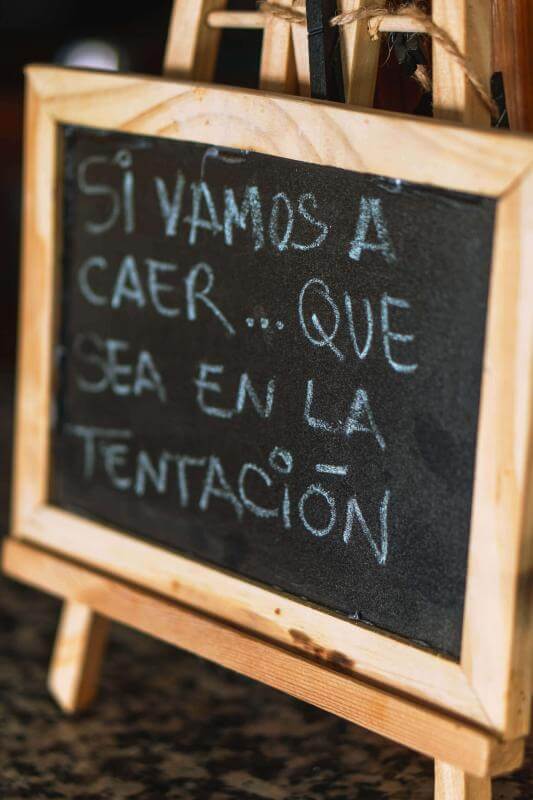 Si VAMOS A
CAER... QUE
SEA EN LA
TENTACiÓN